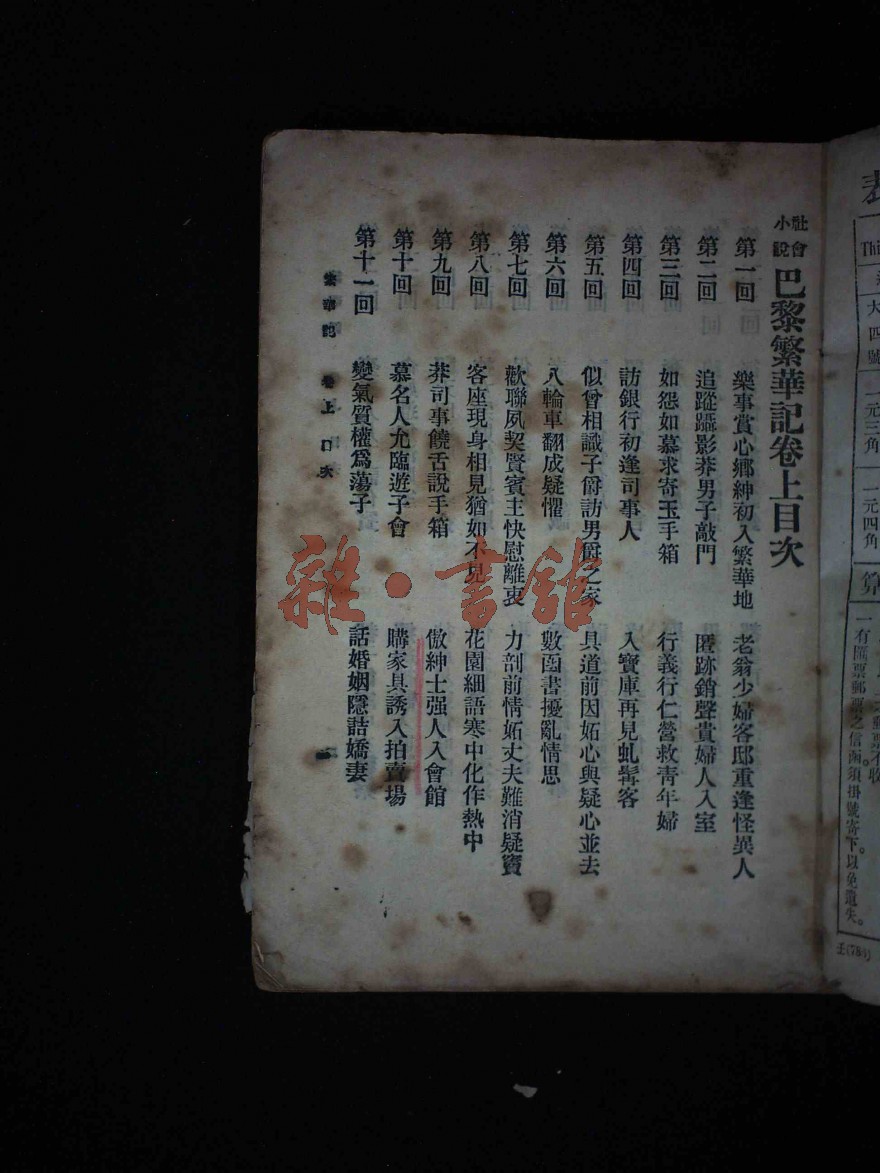 社會小說 巴黎繁華記卷上目次
第一回 樂事賞心鄉紳初入繁華地 老翁少婦客邸重逢怪異人
第二回 追蹤躡影莽男子敲門 匿跡銷聲貴婦人入室
第三回 如怨如慕求寄玉手箱 行義行仁營救靑年婦
第四回 訪銀行初逢司事人 入寶庫再見虬髯客
第五回 似曾相識子爵訪男爵之家 具道前因妬心與疑心並去
第六回 八輪車翻成疑懼 數函書擾亂情思
第七回 歡聯夙契賢賓主快慰離衷 力剖前情妬丈夫難消疑竇
第八回 客座現身相見猶如不見 花園細語寒中化作熱中
第九回 莽司事饒舌說手箱 傲紳士强人入會館
第十回 慕名人允臨遊子會 購家具誘入拍賣場
第十一回 變氣質權爲蕩子 話婚姻隱詰嬌妻
繁華記 卷上 目次 一
雜·書館
大四號 一元三角 一元四角
算
一有匯票郵票之信函須掛號寄下。以免遺失。